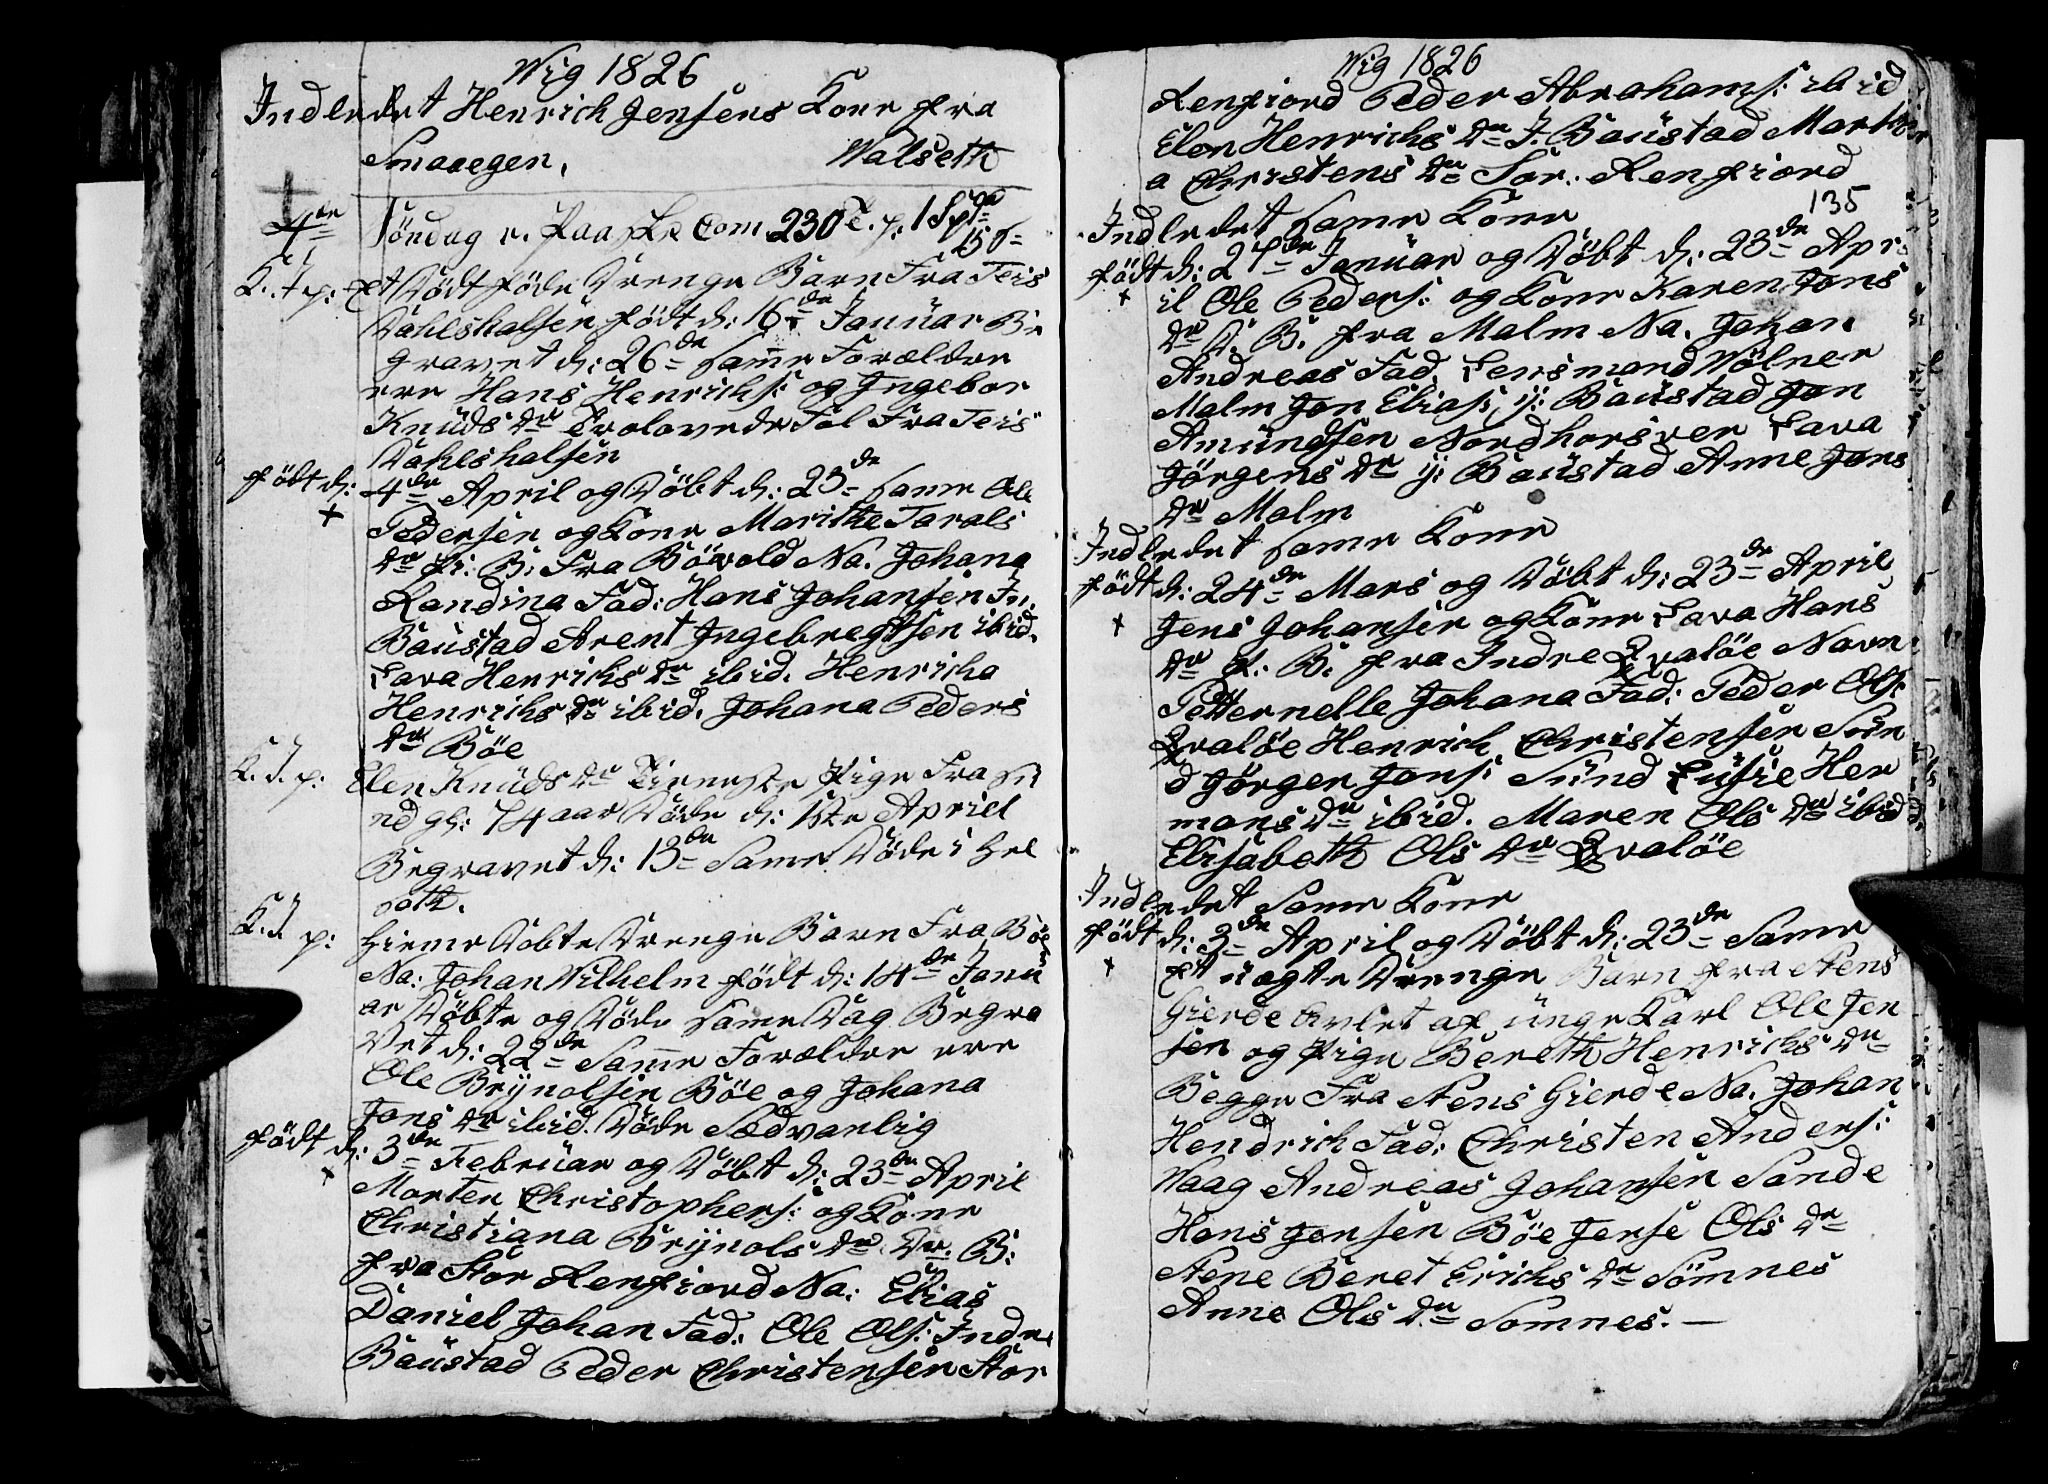 Wig 1826
Indledet Henrich Jensens Kone fra
Smaaegen. Walseth
4de Söndag e. Paaske Com. 230 p: 1 Sp
150
K. J p: et Dödt föde Drenge Barn Fra Teis
Dahlshalsen födt d: 16de Januar Be
gravet d: 26de Same Forældre
ere Hans Henrichs: og Ingebor
Knüds Dr Trolovede Fol Fra Teis
Dahlshalsen
födt d: 4de April og Döbt d: 23de Same Ole
Pedersen og Kone Marithe Tarals
Dr B: Fra Böwold Na. Johana
Randina Fad: Hans Johansen In.
Baustad Arent Ingebregtsen ibid.
Sara Henrichs Dr ibid. Henricha
Henrichs Dr ibid. Johana Peders
Dr Böe
K. J. p: Elen Knüds Dr Tieneste Pige Fra Sü
nd gl: 74 aar Döde d: 1ste Apriel
Begravet d: 13de Same Döde i Hel
soth.
K. J. p: Hieme Döbte Drenge Barn Fra Böe
Na: Johan Wilhelm födt d: 14de Janu
ar Döbte og Döde Same Dag Begra
Vet d: 22de Same Forældre ere
Ole Brÿnolsen Böe og Johana
Jons Dr ibid. Döde Sædvanlig
födt d: 3de Februar og Döbt d: 23de April
Morten Christophers: og Kone
Christiana Brÿnols Dr B:
fra Stor Lenfiord Na: Elias
Daniel Johan Fad: Ole Ols: Indre
Baustad Peder Christensen Stor
Wig 1826
135
Lenfiord Peder Abrahams: ibid
Elen Henrichs Dr J. Baustad Marth
a Christens Dr Stor: Lenfiord
Indledet Same Kone
födt d: 27de Januar og Döbt d: 23de Apr
il Ole Peders: og Kone Karen Jons
Dr B: fra Malm Na. Johan
Andreas Fad. Lensmand Wölner
Malm Jon Elias: ÿ: Baustad Jon
Amundsen Nordhorsver Sara
Jörgens Dr ÿ: Baustad Anne Jons
Dr Malm
Indledet Same Kone
födt d: 24de Mars og Döbt d: 23de April
Jens Johansen og Kone Sara Hans
Dr B: fra Indre Qvalöe Navn
Petternelle Johana Fad: Peder Ols:
Qvalöe Henrich Christensen Sün
d Jörgen Jens: Sünd Lusie Her
mans Dr ibid. Maren Ols Dr ibid.
Elisabeth Ols Dr Qvalöe
Indledet Same Kone
födt d: 3de April og Döbt d: 23de Same
et uægte Drenge Barn fra Stens
Gierde Avlet af unge Karl Ole Jen
sen og Pige Bereth Henrichs Dr
Begge Fra Stens Gierde Na. Johan
Hendrich Fad: Christen Anders:
Waag Andreas Johansen Sande
Hans Jensen Böe Jense Ols Dr
Stene Beret Erichs Dr Sömnes
Anne Ols Dr Somnes. —